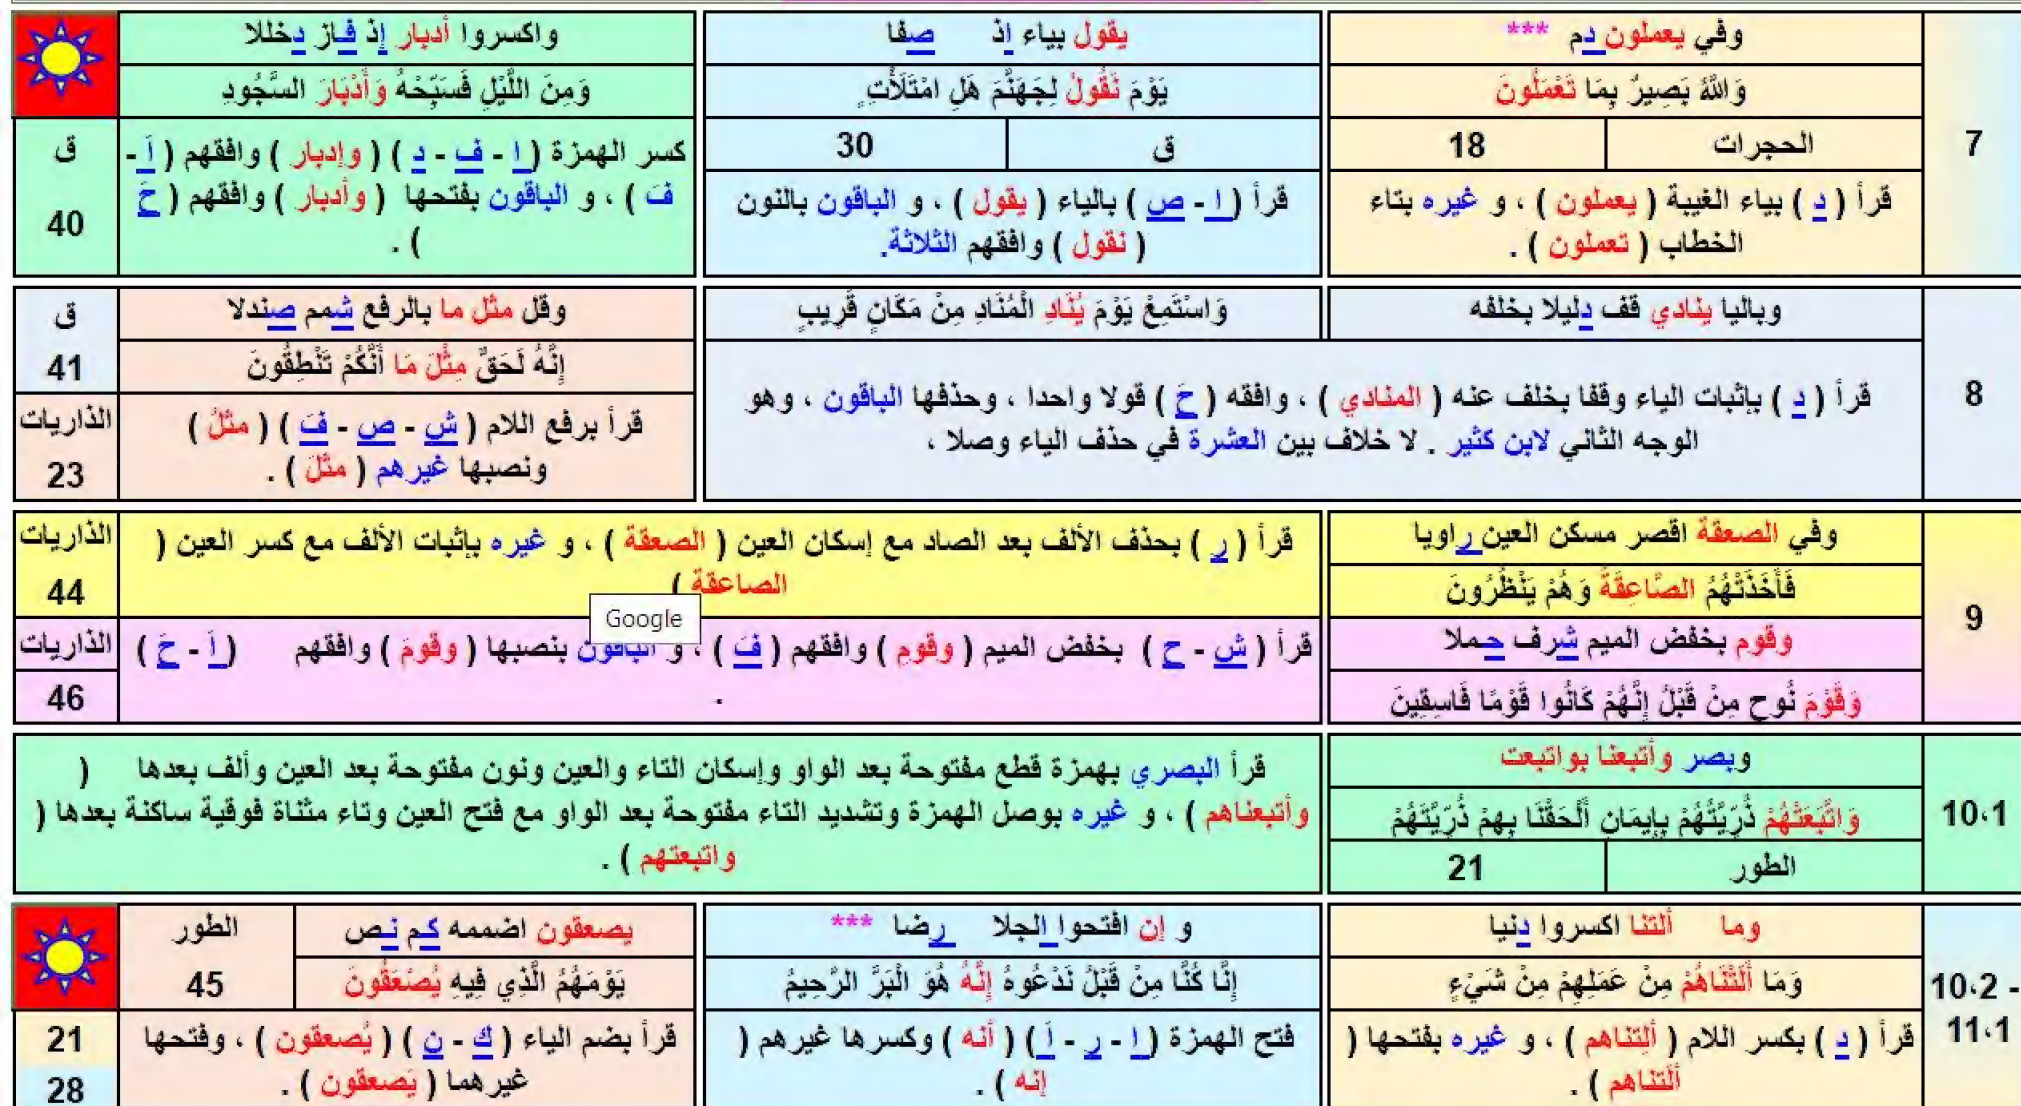 7
وفي يعملون دم ***
وَاللَّهُ بَصِيرٌ بِمَا تَعْمَلُونَ
الحجرات 18
قرأ ( د ) بياء الغيبة ( يعملون ) ، و غيره بتاء
الخطاب ( تعملون ) .
يقول بياء إذ صفا
يَوْمَ نَقُولُ لِجَهَنَّمَ هَلِ امْتَلَأْتِ
ق 30
قرأ ( ا - ص ) بالياء ( يقول ) ، و الباقون بالنون
( نقول ) وافقهم الثلاثة.
واكسروا أدبار إذ فاز دخللا
وَمِنَ اللَّيْلِ فَسَبِّحْهُ وَأَدْبَارَ السُّجُودِ
كسر الهمزة ( ا - ف - د ) ( وإدبار ) وافقهم ( أَ -
فَ ) ، و الباقون بفتحها ( وأدبار ) وافقهم ( حَ
) .
ق
40
8
وباليا ينادي قف دليلا بخلفه
وَاسْتَمِعْ يَوْمَ يُنَادِ الْمُنَادِ مِنْ مَكَانٍ قَرِيبٍ
قرأ ( د ) بإثبات الياء وقفا بخلف عنه ( المنادي ) ، وافقه ( حَ ) قولا واحدا ، وحذفها الباقون ، وهو
الوجه الثاني لابن كثير . لا خلاف بين العشرة في حذف الياء وصلا ،
وقل مثل ما بالرفع شمم صندلا
إِنَّهُ لَحَقٌّ مِثْلَ مَا أَنَّكُمْ تَنْطِقُونَ
قرأ برفع اللام ( ش - ص - فَ ) ( مثلُ )
ونصبها غيرهم ( مثلَ ) .
ق
41
الذاريات
23
9
وفي الصعقة اقصر مسكن العين راويا
فَأَخَذَتْهُمُ الصَّاعِقَةُ وَهُمْ يَنْظُرُونَ
قرأ ( ر ) بحذف الألف بعد الصاد مع إسكان العين ( الصعقة ) ، و غيره بإثبات الألف مع كسر العين (
الصاعقة )
الذاريات
44
Google
وقوم بخفض الميم شرف حملا
وَقَوْمَ نُوحٍ مِنْ قَبْلُ إِنَّهُمْ كَانُوا قَوْمًا فَاسِقِينَ
قرأ ( ش - ح ) بخفض الميم ( وقومِ ) وافقهم ( فَ ) ، و الباقون بنصبها ( وقومَ ) وافقهم ( أَ - حَ )
.
الذاريات
46
10،1
وبصر وأتبعنا بواتبعت
وَاتَّبَعَتْهُمْ ذُرِّيَّتُهُمْ بِإِيمَانٍ أَلْحَقْنَا بِهِمْ ذُرِّيَّتَهُمْ
الطور 21
قرأ البصري بهمزة قطع مفتوحة بعد الواو وإسكان التاء والعين ونون مفتوحة بعد العين وألف بعدها (
وأتبعناهم ) ، و غيره بوصل الهمزة وتشديد التاء مفتوحة بعد الواو مع فتح العين وتاء مثناة فوقية ساكنة بعدها (
واتبعتهم ) .
10،2 -
11،1
وما ألتنا اكسروا دنيا
وَمَا أَلَتْنَاهُمْ مِنْ عَمَلِهِمْ مِنْ شَيْءٍ
قرأ ( د ) بكسر اللام ( ألِتناهم ) ، و غيره بفتحها (
ألَتناهم ) .
و إن افتحوا الجلا رضا ***
إِنَّا كُنَّا مِنْ قَبْلُ نَدْعُوهُ إِنَّهُ هُوَ الْبَرُّ الرَّحِيمُ
فتح الهمزة ( ا - ر - أَ ) ( أنه ) وكسرها غيرهم (
إنه ) .
يصعقون اضممه كم نص
يَوْمَهُمُ الَّذِي فِيهِ يُصْعَقُونَ
قرأ بضم الياء ( ك - ن ) ( يُصعقون ) ، وفتحها
غيرهما ( يَصعقون ) .
الطور
45
21
28